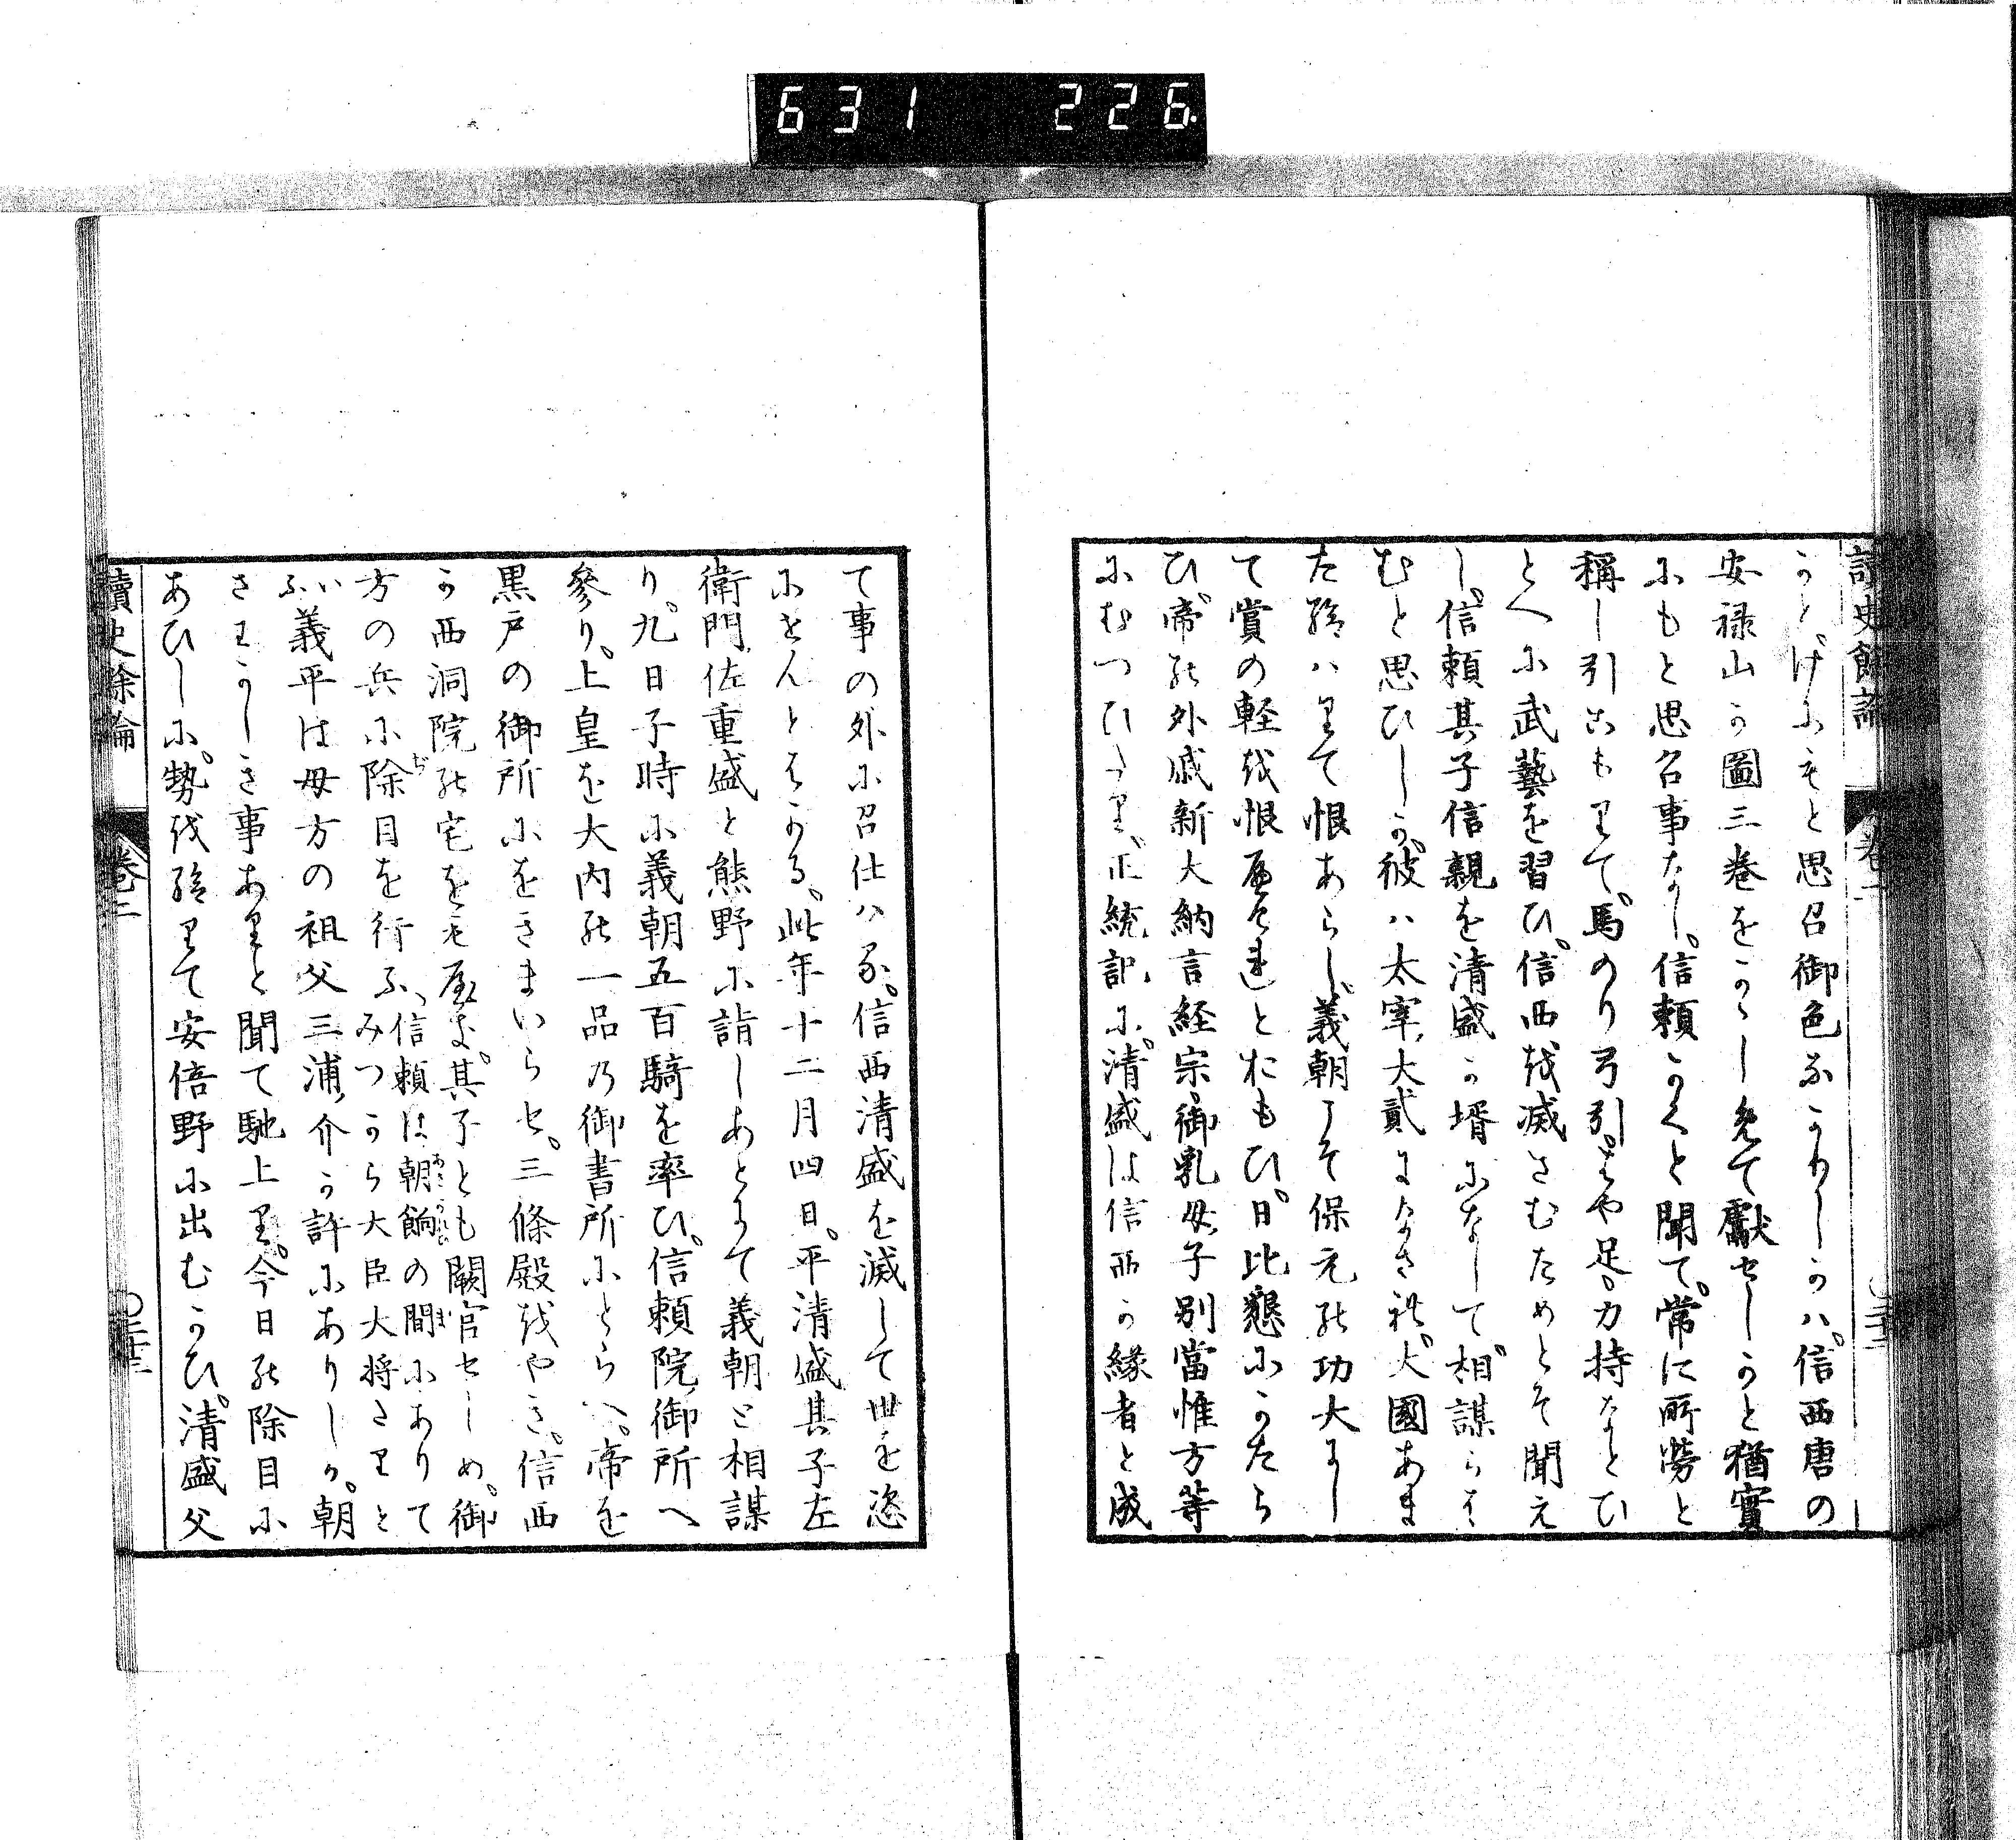 631 226
讀史餘論 卷二
うとげにもと思召御色なかりしかハ。信西唐の
安禄山の圖三巻をかゝしめて獻せしかと猶實
にもと思召事なし。信頼かくと聞て。常に所勞と
稱し引こもりて。馬のり弓引。はや足。力持なとひ
とへに武藝を習ひ。信西を滅さむためとそ聞え
し。信頼其子信親を清盛の壻になして相謀らは
むと思ひしか。彼ハ太宰大貳になされ。大國あま
た給ハりて恨あらし。義朝こそ保元の功大にし
て賞の軽を恨へけれとおもひ。日比懇にかたら
ひ。帝の外戚新大納言経宗。御乳母子別當惟方等
にむつひたり。正統記に。清盛は信西の縁者と成
て事の外に召仕ハる。信西清盛を滅して世を恣
にせんとはかる。此年十二月四日。平清盛其子左
衛門佐重盛と熊野に詣しあとにて義朝と相謀
り。九日子時に義朝五百騎を率ひ。信頼院御所へ
參り。上皇を大内の一品の御書所にとらへ。帝を
黒戸の御所にをきまいらせ。三條殿をやき。信西
の西洞院の宅をも燬き。其子とも闕官せしめ。御
方の兵に除目を行ふ。信頼は朝餉の間にありて
みつから大臣大将さりと
いふ義平は母方の祖父三浦介の許にありしか。朝
さわかしき事ありと聞て馳上り。今日の除目に
あひしに。勢を給りて安倍野に出むかひ。清盛父
讀史餘論 卷二